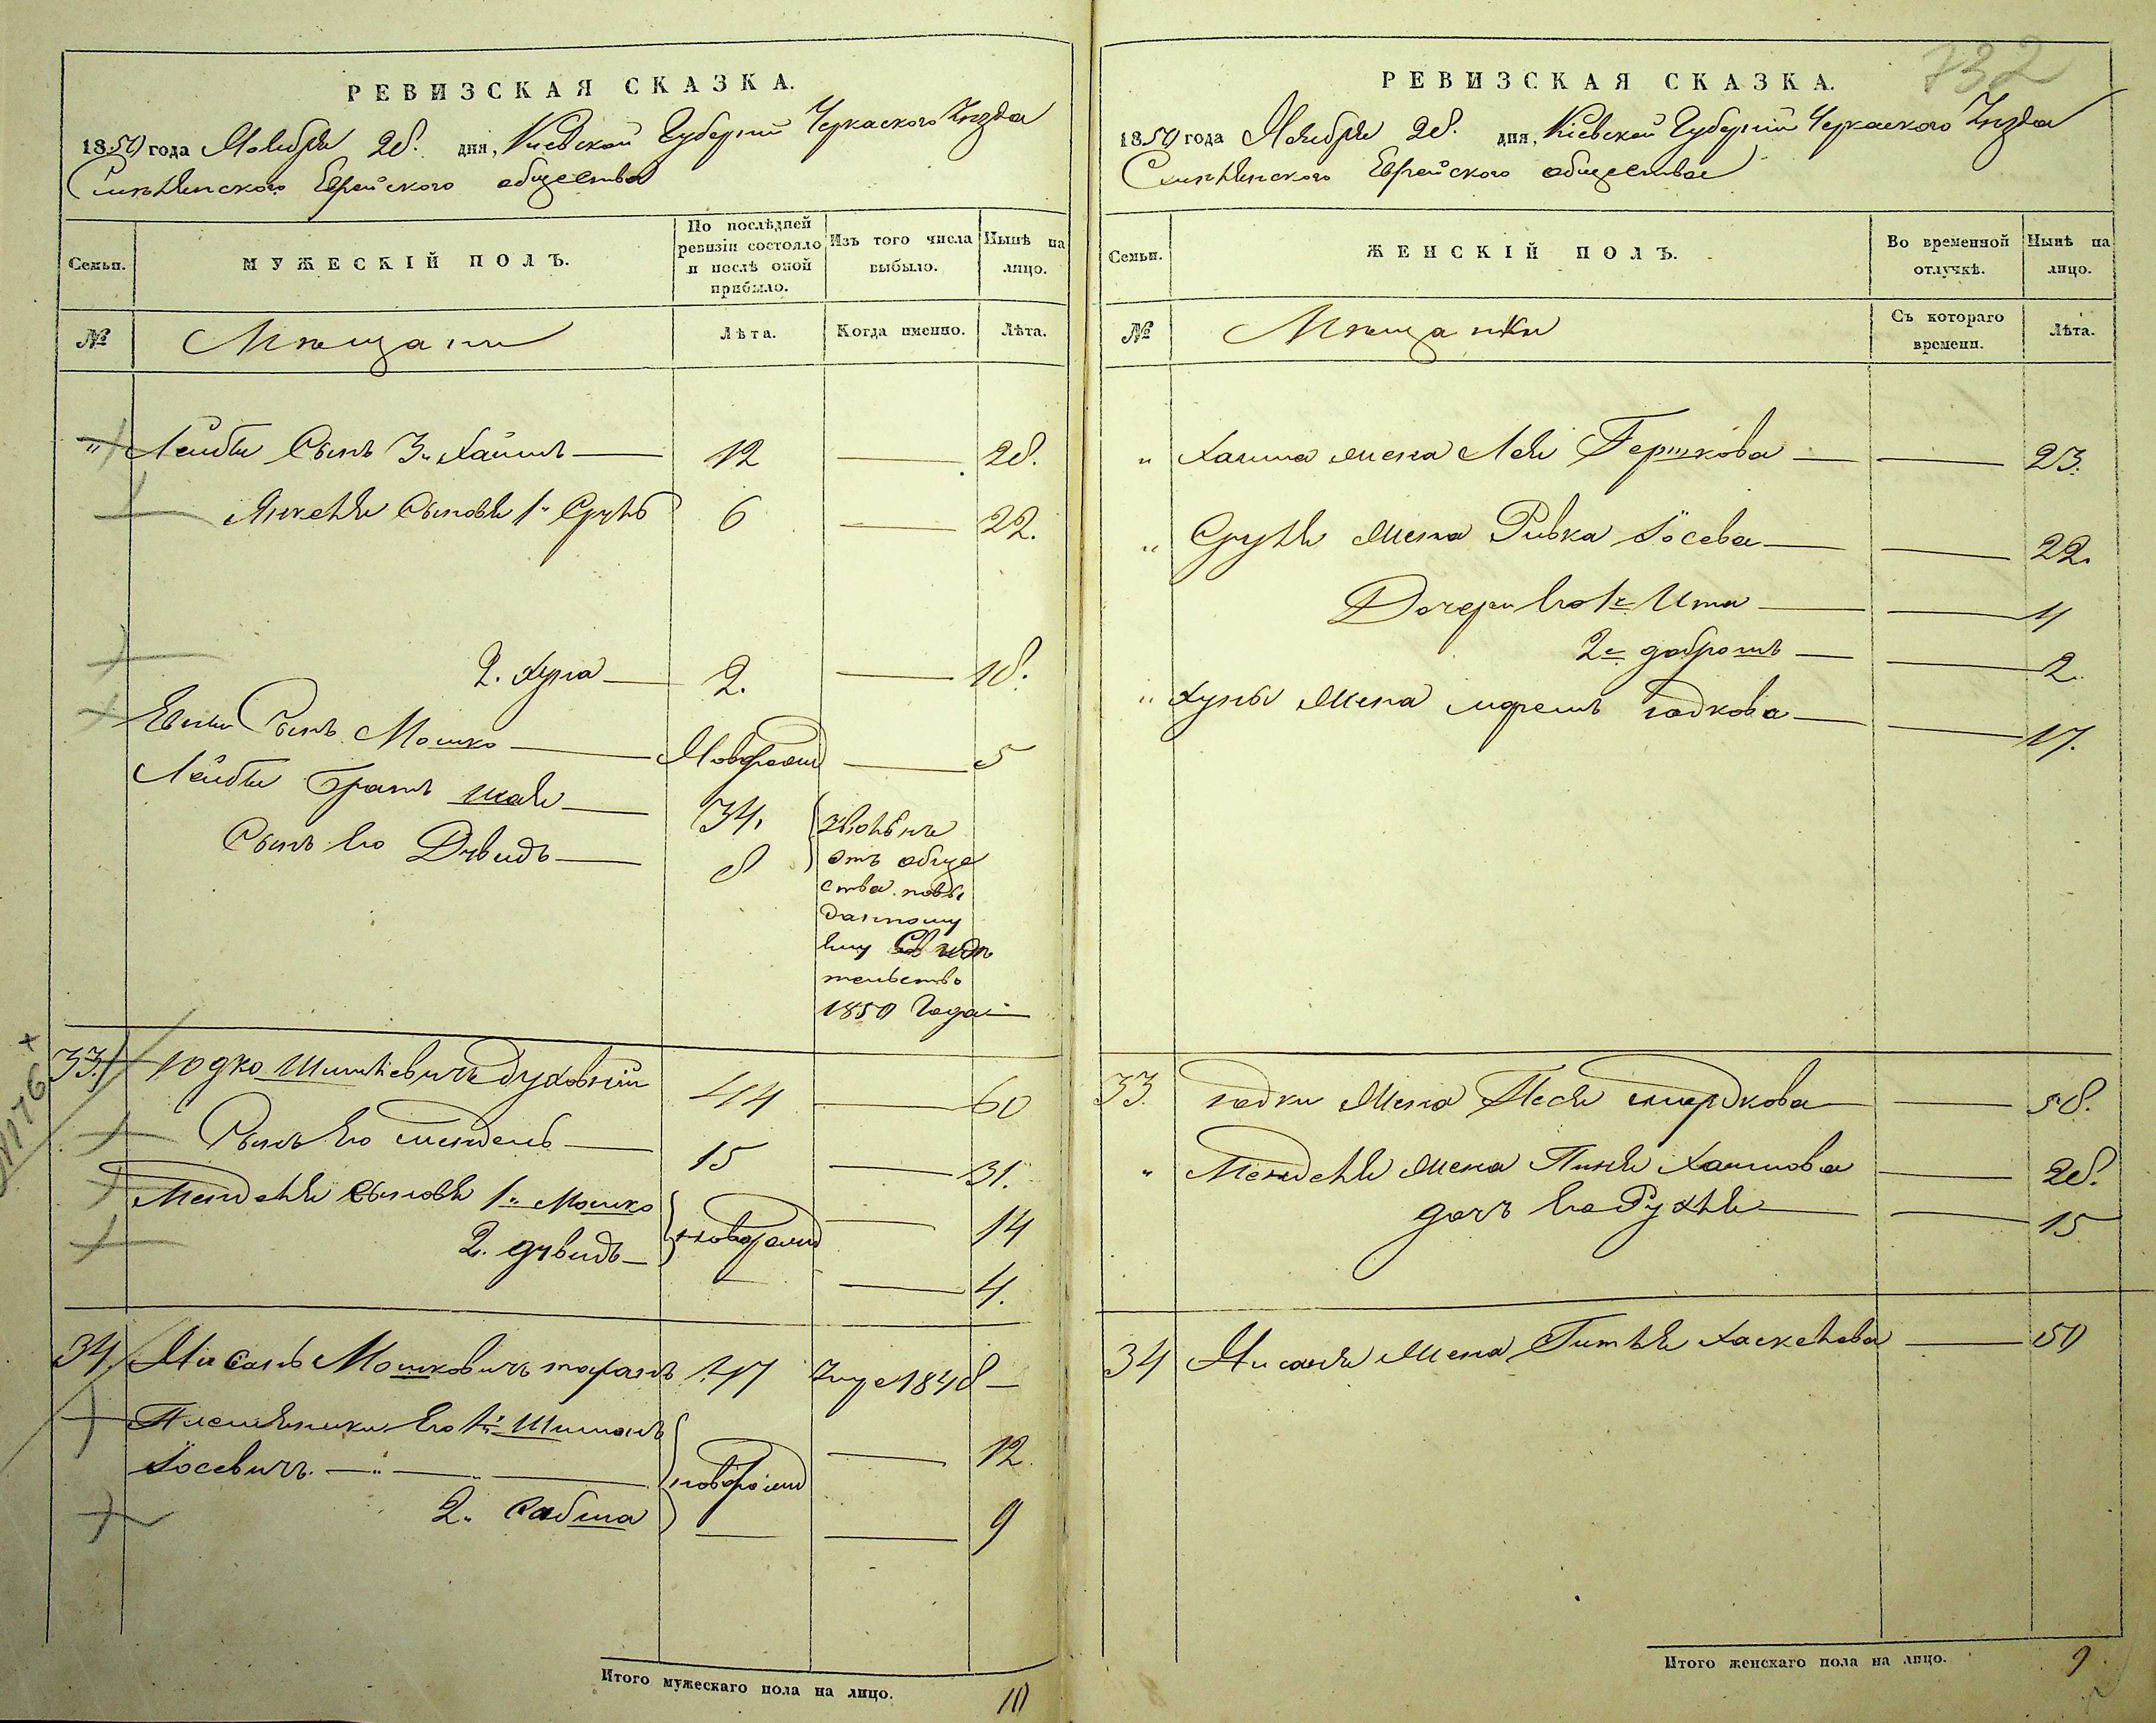 РЕВИЗСКАЯ СКАЗКА.
1850 года Ноября 28. дня, Киевской Губернии Черкаского Уезда
Смелянского Еврейского общества
Семьи.
МУЖЕСКІЙ ПОЛЪ.
По послѣдней ревизіи состояло и послѣ оной прибыло.
Изъ того числа выбыло.
Нынѣ на лицо.
№
Мещани
Лѣта.
Когда именно.
Лѣта.
" Лейбы Сынъ 3й Хаимъ — 12 — 28.
Янкеля Сыновья 1й Сруль 6 — 22.
2. Хуна — 2. — 18.
Сынъ Мошко — Новорож — 5
Лейбы Братъ Шая — 34.
Сынъ Его Дувидъ — 8
отъ обще
ства по вы
данному
ему Свиде
тельству
1850 Года —
33. Юдко Духовный 44 — 60
Сынъ Его Мендель — 15 — 31.
Менделя Сыновья 1й Мошко новорож — 14
2. Дувидъ — — 4.
34. Нисанъ Мошковичъ 47 Уме 1848 —
Племяники Его 1й Шиманъ новорож — 12.
Іосевичъ. — " — " —
2й Сабша — — 9
Итого мужескаго пола на лицо. 10
732
РЕВИЗСКАЯ СКАЗКА.
1850 года Ноября 28. дня, Кіевской Губерніи Черкаского Уезда
Смелянского Еврейского общества
Семьи.
ЖЕНСКІЙ ПОЛЪ.
Во временной отлучкѣ.
Нынѣ на лицо.
№
Мещанки
Съ котораго времени.
Лѣта.
" Хаима жена Лея Гершкова — — 23.
" Сруля жена Ривка Іосева — — 22.
Дочери Его 1я Ита — — 4
2я Доброшъ — — 2.
" Хуны жена Юдкова — — 17.
33. Юдки жена Песя — — 58.
" Менделя жена Пиня Хаимова — — 28.
дочь Его Рухля — — 15
34 Нисаня жена Гитля Хаскелева — 50
Итого женскаго пола на лицо. 9